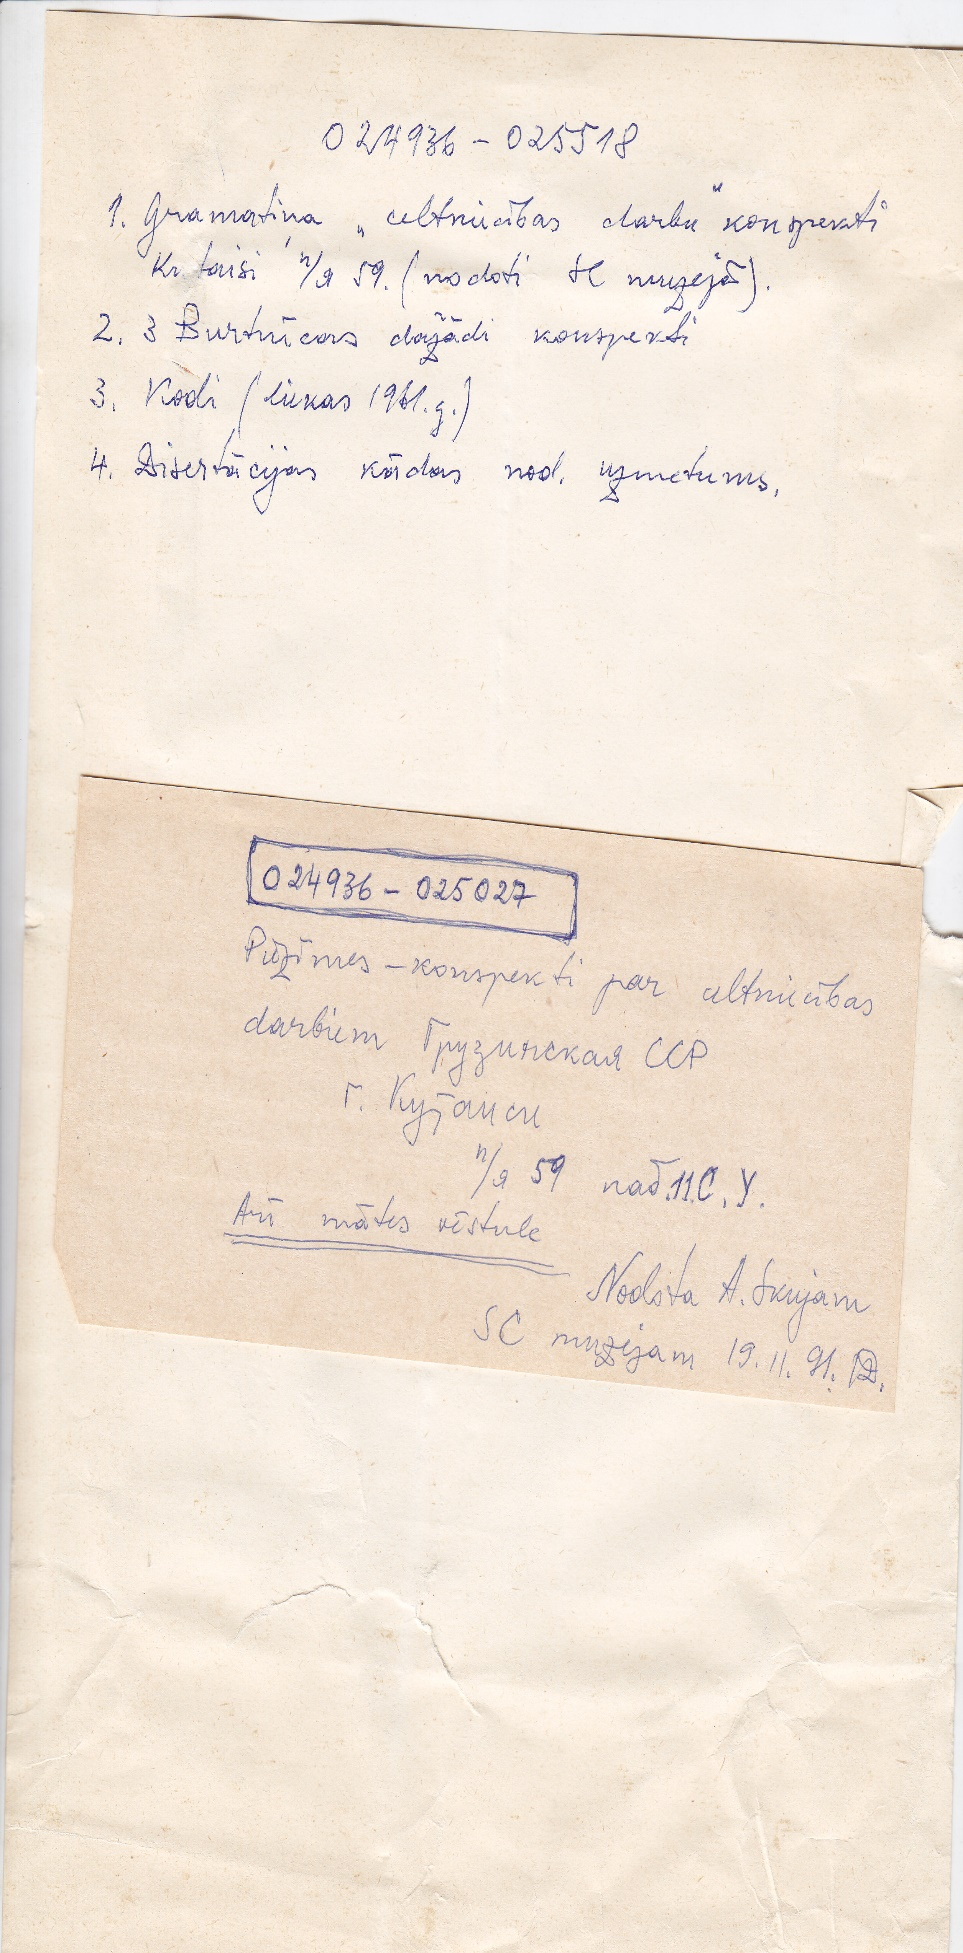 024936 – 025518
1. Gramatiņa „celtniecības darbu" konspekti
Kutaisi п/я 59. (nodoti SC muzejā).
2. 3 Burtnīcas dažādi konspekti
3. Kodi (liekas 1961.g.)
4. Disertācijas kādas nod. uzmetums.
024936 – 025027
Piezīmes – konspekti par celtniecības
darbiem Грузинская ССР
г. Кутаиси
п/я 59
Arī mātes vēstule
Nodota A. Skujam
SC muzejam 19.11.91.